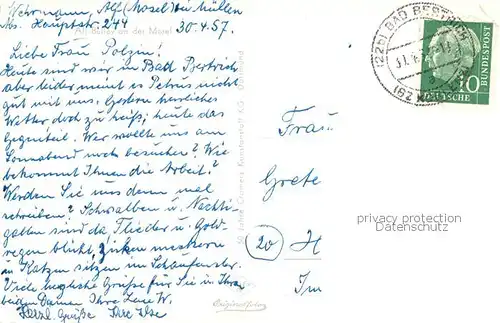 Wehrmann, Alf (Mosel) bei Müllen
Hauptstr. 244 30.4.57.
Alf-Bullay an der Mosel
Liebe Frau Polzin!
Heute sind wir in Bad Bertrich
aber leider meint es Petrus nicht
gut mit uns. Gestern herrliches
Wetter doch zu heiß, heute das
Gegenteil. Wer wollte uns am
Sonnabend noch besuchen? Wie
bekommt Ihnen die Arbeit?
Werden Sie uns denn mal
schreiben? Schwalben u. Nachti-
gallen sind da Flieder u. Gold-
regen blüht, Zicken meckern
u Katzen sitzen im Schaufenster.
Viele herzliche Grüße für Sie u Ihre
beiden Damen Ihre Lene W.
Herzl Grüße Ihre Ilse
Frau
Grete
(20) H
Im
(22b) BAD BERTRICH
DEUTSCHE
BUNDESPOST
10
privacy protection
Datenschutz